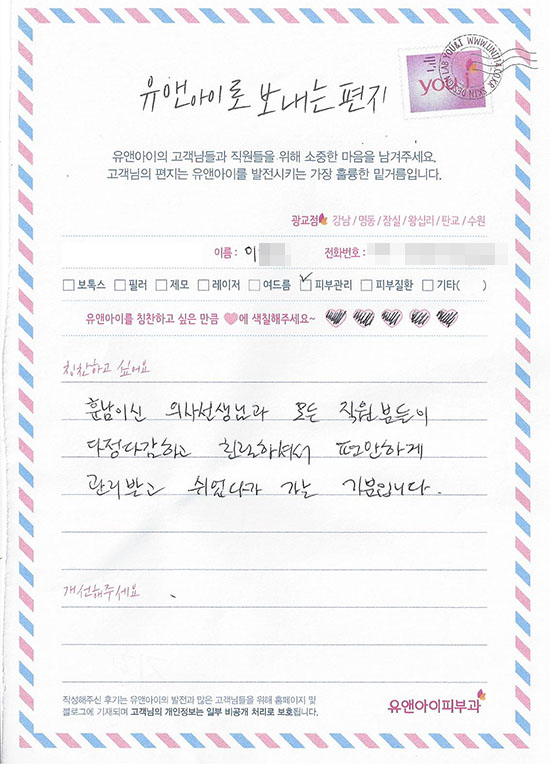 SKIN DESIGN LAB YOU&I WWW.UNI114.CO.KR
you&i
유앤아이로 보내는 편지
유앤아이의 고객님들과 직원들을 위해 소중한 마음을 남겨주세요.
고객님의 편지는 유앤아이를 발전시키는 가장 훌륭한 밑거름입니다.
광교점 강남 / 명동 / 잠실 / 왕십리 / 판교 / 수원
이름 : 이 전화번호 :
보톡스 필러 제모 레이저 여드름 피부관리 피부질환 기타( )
유앤아이를 칭찬하고 싶은 만큼 에 색칠해주세요~
칭찬하고 싶어요
훈남이신 의사선생님과 모든 직원분들이
다정다감하고 친절하셔서 편안하게
관리받고 쉬었다가 가는 기분입니다.
개선해주세요
작성해주신 후기는 유앤아이의 발전과 많은 고객님들을 위해 홈페이지 및
블로그에 기재되며 고객님의 개인정보는 일부 비공개 처리로 보호됩니다.
유앤아이피부과